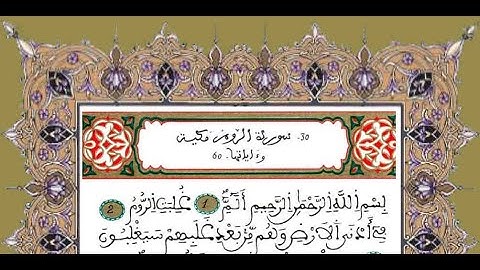 30. سورة الروم مكية
وءاياتها 60
بِسْمِ اِ۬للَّهِ اِ۬لرَّحْمَٰنِ اِ۬لرَّحِيمِ أَلَٓمِّٓ 1 غُلِبَتِ اِ۬لرُّومُ 2
فِے أَدْنَي اَ۬لَارْضِ وَهُم مِّنۢ بَعْدِ غَلَبِهِمْ سَيَغْلِبُونَ